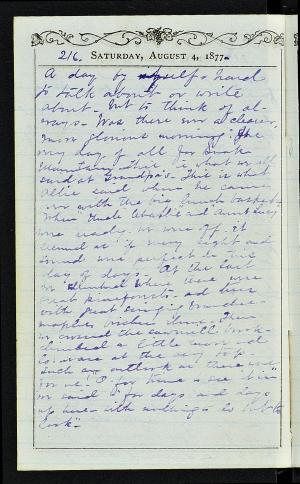 216.
SATURDAY, AUGUST 4, 1877.
A day by itself - hard
to talk about or write
about - but to think of al-
ways - Was there ever a clearer,
more glorious morning? The
very day of all for
Mountain. This is what we all
said at Grandpa's. This is what
Allie said when he came
over with the big lunch basket -
When Uncle and Aunt Lucy
were ready we were off. It
seemed as if every sight and
sound was perfect in this
day of days - At the last
we climbed where there were
great - and trees
with great
maples - Then
we crossed the brook -
climbed a little more and
lo - we were at the very top.
Such an outlook as there was
for us! "O for time to see it in"
we said "for days and days
up here - with nothing to
look" -